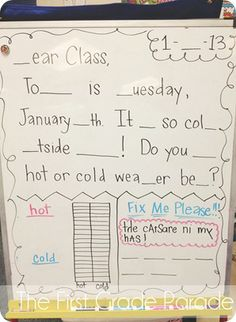 1-__-13
_ear Class,
To___ is _uesday,
January __th. It _ so col_
_tside ____! Do you __
hot or cold wea__er be__?
hot
cold
hot cold
Fix Me Please!!!
the cAtSare ni my
hAS!
The First Grade Parade